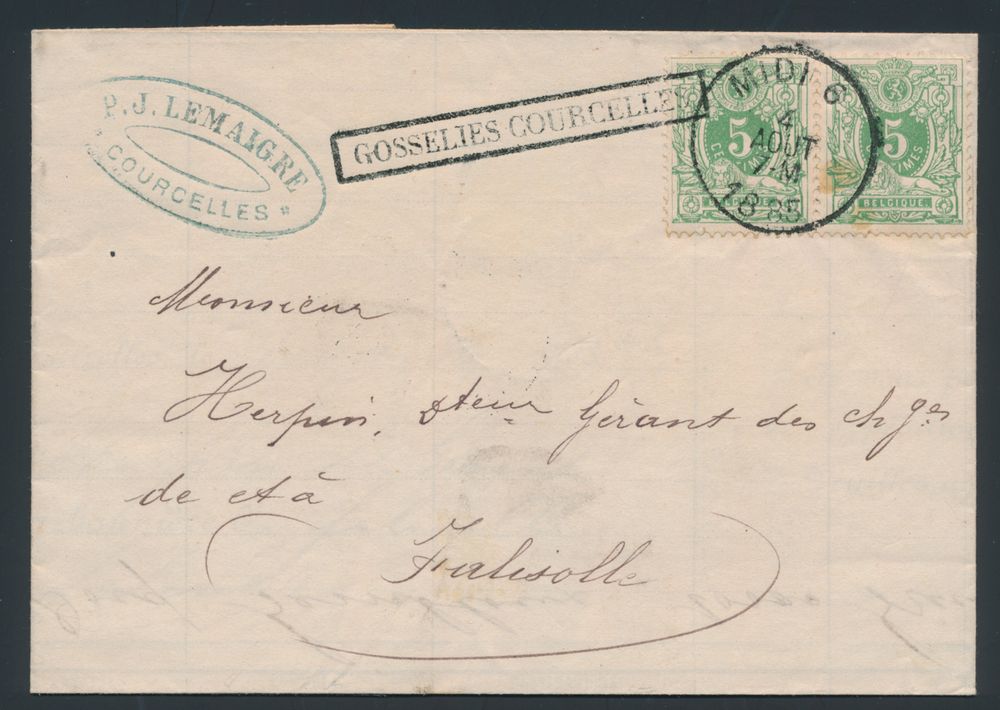 P. J. LEMAIGRE
COURCELLES
GOSSELIES COURCELLES
MIDI 6
4
AOUT
7-M
1885
5
CMES
BELGIQUE
5
CMES
BELGIQUE
Monsieur
Herpin, Dteur Gérant des ch ges
de et à
Falisolle